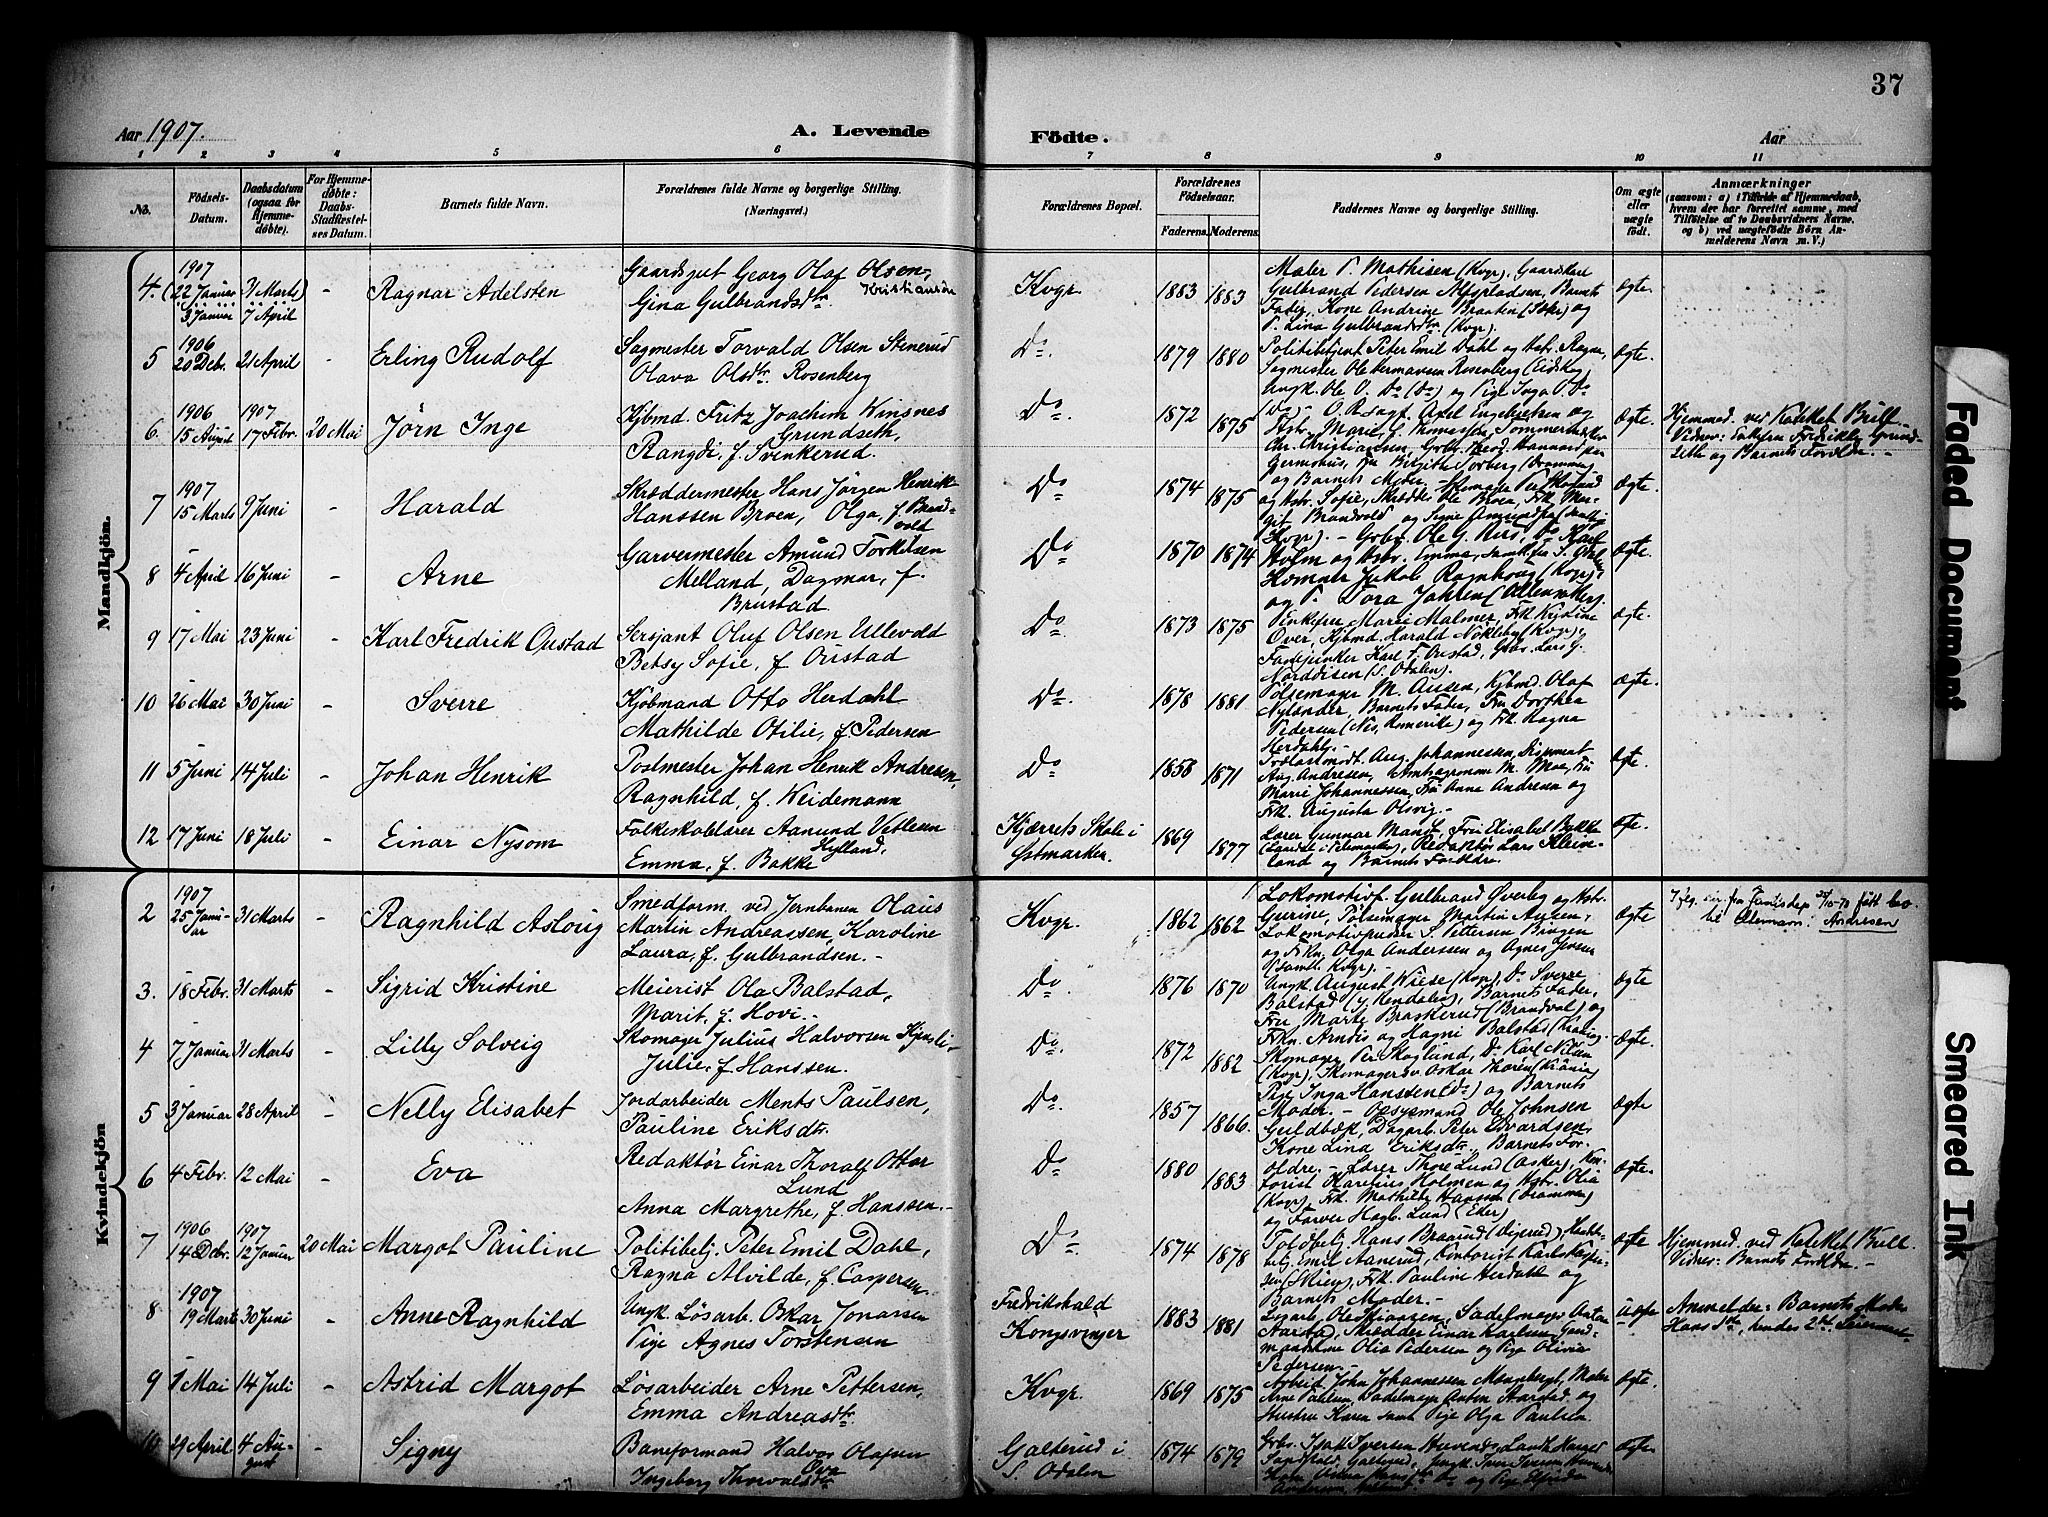 37
Aar 1907.
A. Levende
Födte.
Aar
1 2 3 4 5 6 7 8 9 10 11
No.
Födsels-
Datum.
Daabsdatum
(ogsaa for
Hjemme-
døbte).
For Hjemme-
døbte:
Daabs-
Stadfæstel-
ses Datum.
Barnets fulde Navn.
Forældrenes fulde Navne og borgerlige Stilling.
(Næringsvei.)
Forældrenes Bopæl.
Forældrenes
Födselsaar.
Faderens. Moderens.
Faddernes Navne og borgerlige Stilling.
Om ægte
eller
uægte
födt.
Anmærkninger
(saasom: a) i Tilfælde af Hjemmedaab,
hvem der har forrettet samme, med
Tilföielse af to Daabsvidners Navne,
og b) ved uægtefödte Börn An-
melderens Navn m. V.)
Mandkjön.
4. 1907 (22 Januar 3 Januar 7 April - Ragnar Adelsten
Gaardsgut Georg Olaf Olsen,
Kristiansen
Gina Gulbrandsdtr
Kvgr. 1883 1883
Maler P. Mathisen (Kvgr), Gaardskarl
Gulbrand Pedersen
Barnets
Fader, Kone Andrine Braaten
og
P. Lina Gulbrandsdtr (Kvgr).
Ægte.
5 1906 20 Debr. 21 April - Erling Rudolf
Sagmester Torvald Olsen Stenerud
Olava Olsdtr Rosenberg
Do. 1879 1880
Politibetjent Peter Emil Dahl og Hstr. Ragna,
Sagmester Ole Hermansen Rosenberg (Eidskog)
Ungk. Ole O. Do (Do) og Pige Inga O. Do
(Do) -
Ægte.
6. 1906 15 August 1907 17 Febr. 20 Mai Jørn Inge
Kjbmd. Fritz Joachim Winsnes
Grundseth,
Rangdi, f. Svenkerud.
Do. 1872 1875
O.R.sagf. Axel Engebretsen og
Hstr. Marie,
Thomassen,
Chr. Christiansen,
Birgithe
(Drammen)
og Barnets Moder. -
Ægte.
Hjemmed. ved Kateket Bull.
Vidner: Enkefru Fredrikke Grund-
seth og Barnets Foreldre. -
7 1907 15 Marts 9 Juni - Harald
Skræddermester Hans Jørgen Henrik
Hanssen Broen, Olga, f. Brand-
vold
Do 1874 1875
Skomager Per Skoglund
og Hstr. Sofie, Skrædder Ole Broen, Frk. Mar-
git Brandvold og Signe
Kvgr) -
Ægte.
8 4 April 16 Juni - Arne
Garvermester Amund Torkilsen
Melland, Dagmar, f.
Brustad
Do 1870 1874
Grbr. Ole G.
Do Karl
Holm og Hstr. Emma, samt
Jakob
(Kvgr),
og P. Dora Johsen
Ægte.
9 17 Mai 23 Juni - Karl Fredrik Oustad
Sersjant Oluf Olsen Ullevold
Betsy Sofie, f. Oustad
Do. 1873 1875
Enkefru Marie Malmer, Frk Kristine
Over, Kjbmd Harald Nökleby (Kvgr),
Fanejunker Karl F. Oustad, Grbr. Lars G.
Norddisen (S. Odalen).
Ægte.
10 26 Mai 30 Juni - Sverre
Kjöbmand Otto Herdahl
Mathilde Otilie, f. Pedersen
Do. 1878 1881
Pölsemager M. Ausen, Kjbmd. Olaf
Nylænder, Barnets Fader, Fru Dorthea
Pedersen (Nes, Romerike) og Frk. Ragna
Herdahl. -
Ægte.
11 5 Juni 14 Juli - Johan Henrik
Postmester Johan Henrik Andresen,
Ragnhild, f. Weidemann
Do. 1858 1871
Aug. Johannessen, Disponent
Aug. Andresen, Amtsagronom M. Moe, Fru
Marie Johannessen, Fru Anna Andresen og
Frk. Augusta Olsvig. -
Ægte.
12 17 Juni 18 Juli - Einar Nysom
Folkeskolelærer Aanund Vetlesen
Hylland,
Emma, f. Bakke
Kjærrets Skole i
Østmarken. 1869 1877
Lærer Gunnar
Fru Elisabet Bakke
Redaktør Lars Klein-
land og Barnets Foreldre.
Ægte.
Kvindekjön
2 1907 25 Janu-
ar 31 Marts - Ragnhild Aslaug
Smedform. ved Jernbanen Olaus
Martin Andreassen, Karoline
Laura, f. Gulbrandsen. -
Kvgr. 1862 1862
Lokomotivf. Gulbrand Overby og Hstr.
Gurine, Pölsemager Martin Ausen,
Lokomotivpudser S. Pettersen Bingen
og Frkn. Olga Andersen og Agnes Jensen
(samtl. Kvgr). -
Ægte
Andresen
3. 18 Febr. 31 Marts - Sigrid Kristine
Meierist Ola Balstad,
Marit, f. Hovi. -
Do. 1876 1870
Ungk. August Wiese (Kvgr), Do Sverre
Balstad
Barnets Fader,
Fru Marte Braskerud (Brandval) og
Frkn. Arndis og Magni Balstad
Ægte
4 7 Januar 31 Marts - Lilly Solveig
Skomager Julius Halvorsen Kjensli -
Julie, f. Hanssen.
Do. 1872 1882
Skomager Per Skoglund, Do Karl Nilsen
(Kvgr), Skomagersv. Oskar Thoren (Kr.ania)
Pige Inga Hanssen (Do) og Barnets
Moder. -
Ægte.
5 3 Januar 28 April - Nelly Elisabet
Jordarbeider Ments Paulsen,
Pauline Eriksdtr.
Do. 1857 1866.
Opsysmand Ole Johnsen
Guldbæk, Dagarb. Peter Edvardsen,
Kone Lina Eriksdtr, Barnets For-
ældre. -
Ægte
6 4 Febr. 12 Mai - Eva
Redaktør Einar Thoralf Ottar
Lund
Anna Margrethe, f. Hanssen. -
Do 1880 1883
Lærer Thore Lund (Asker), Kon-
torist Harelius Holmen og Hstr. Olia
(Kvgr), Frk. Mathilde Hanssen (Drammen)
og Farver Hagb. Lund (Eker)
Ægte.
7 1906 14 Debr. 1907 12 Januar 20 Mai Margot Pauline
Politibetj. Peter Emil Dahl,
Ragna Alvilde, f. Caspersen
Do 1874 1878
Toldbetj. Hans Braarud
betj. Emil Aanerud, Kontorist Karl Kasper-
sen (Skien), Frk. Pauline Herdahl og
Barnets Moder. -
Ægte
Hjemmed. ved Katekket Bull.
Vidner: Barnets Foreldre. -
8 1907 19 Marts 30 Juni - Anne Ragnhild
Ungk. Lösarb. Oskar Jonassen
Pige Agnes Torstensen
Fredrikshald
Kongsvinger 1883 1881
Lösarb. Ole
Sadelmager Anton
Aarstad, Skrædder Einar Karlsen, Gaard-
mandskone Olia Pedersen og Pige Olivia
Pedersen. -
uægte
Anmelder: Barnets Moder
Hans 1ste, hendes 2det Leiermaal
9 1 Mai 14 Juli - Astrid Margot
Lösarbeider Arne Pettersen,
Emma Andreasdtr
Kvgr. 1869 1875
Arbeid. John Johannesen
Maler
Arne Paulsen, Sadelmager Anton Aarstad og
Hustru Karen samt Pige Olga Paulsen
Ægte.
10 29 April 4 Au-
gust - Signy
Baneformand Halvor Olafsen
Ova
Ingeborg Thorvalsdtr
Galterud i
S. Odalen 1874 1879
Grbr. Isak Iversen
Sandstad, Galterud, Ungk. Iver Iversen
Ægte
Faded Document
Smeared Ink